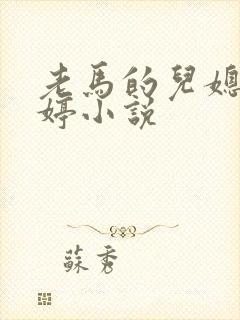 老馬的兒媳
婷小説
蘇秀